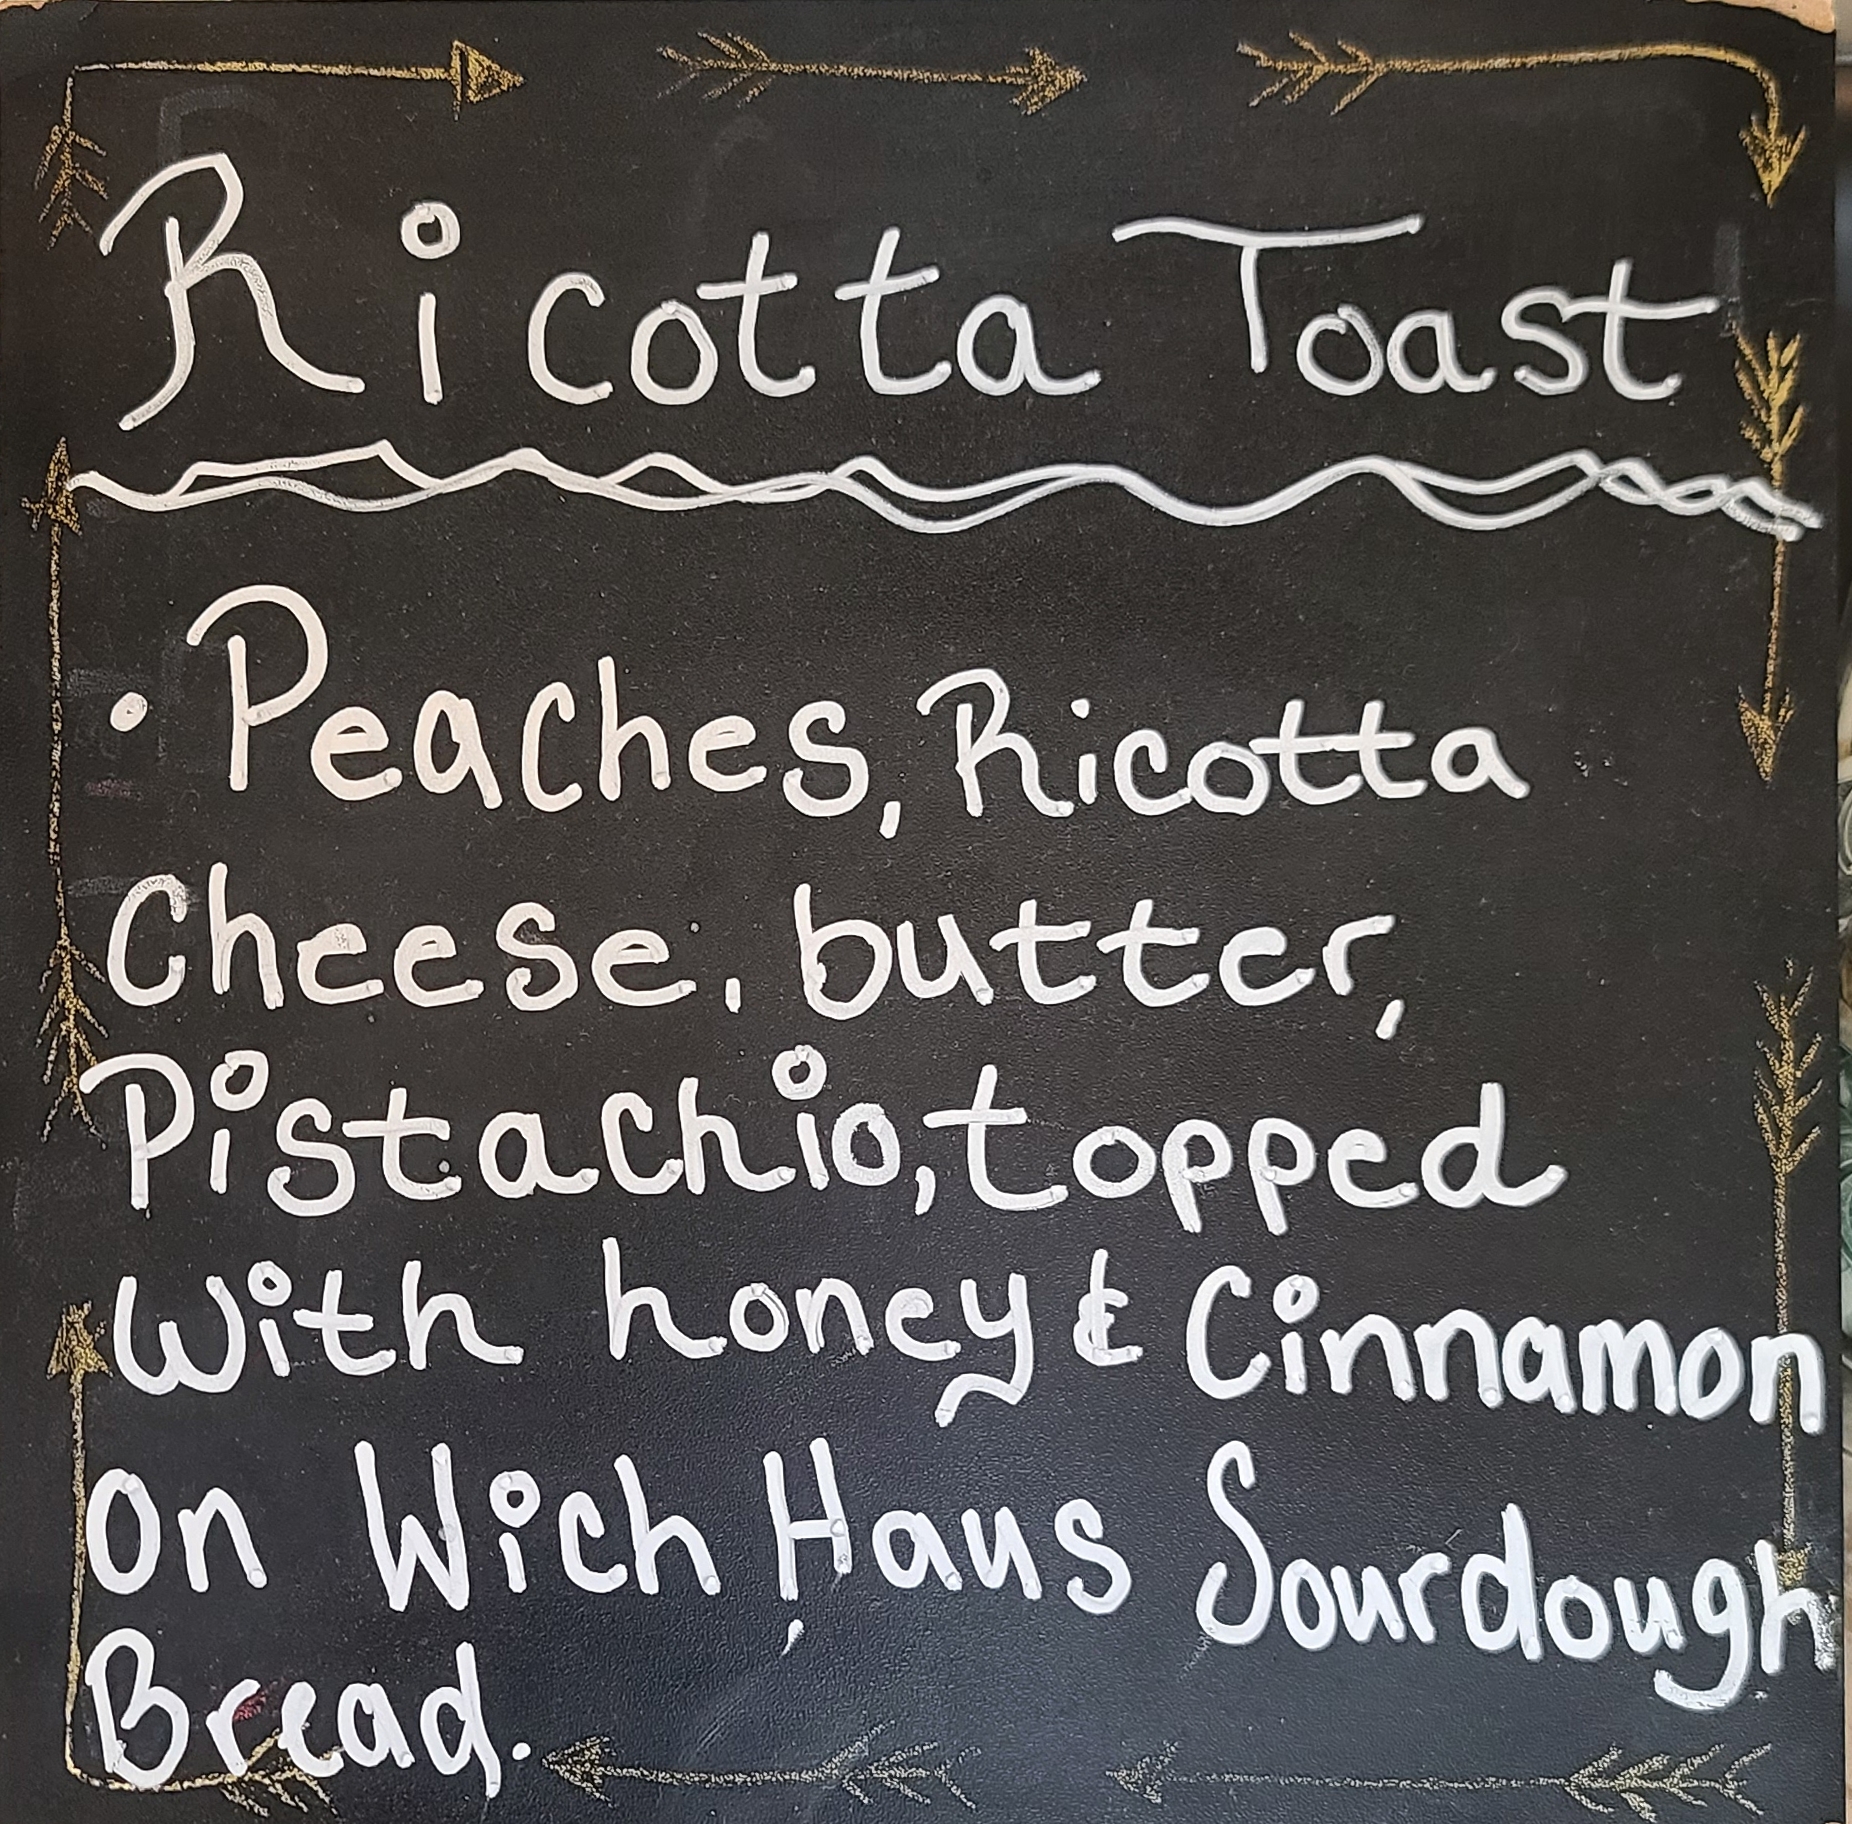 Ricotta Toast
• Peaches, Ricotta
Cheese, butter,
Pistachio, topped
With honey & Cinnamon
On Wich Haus Sourdough
Bread.